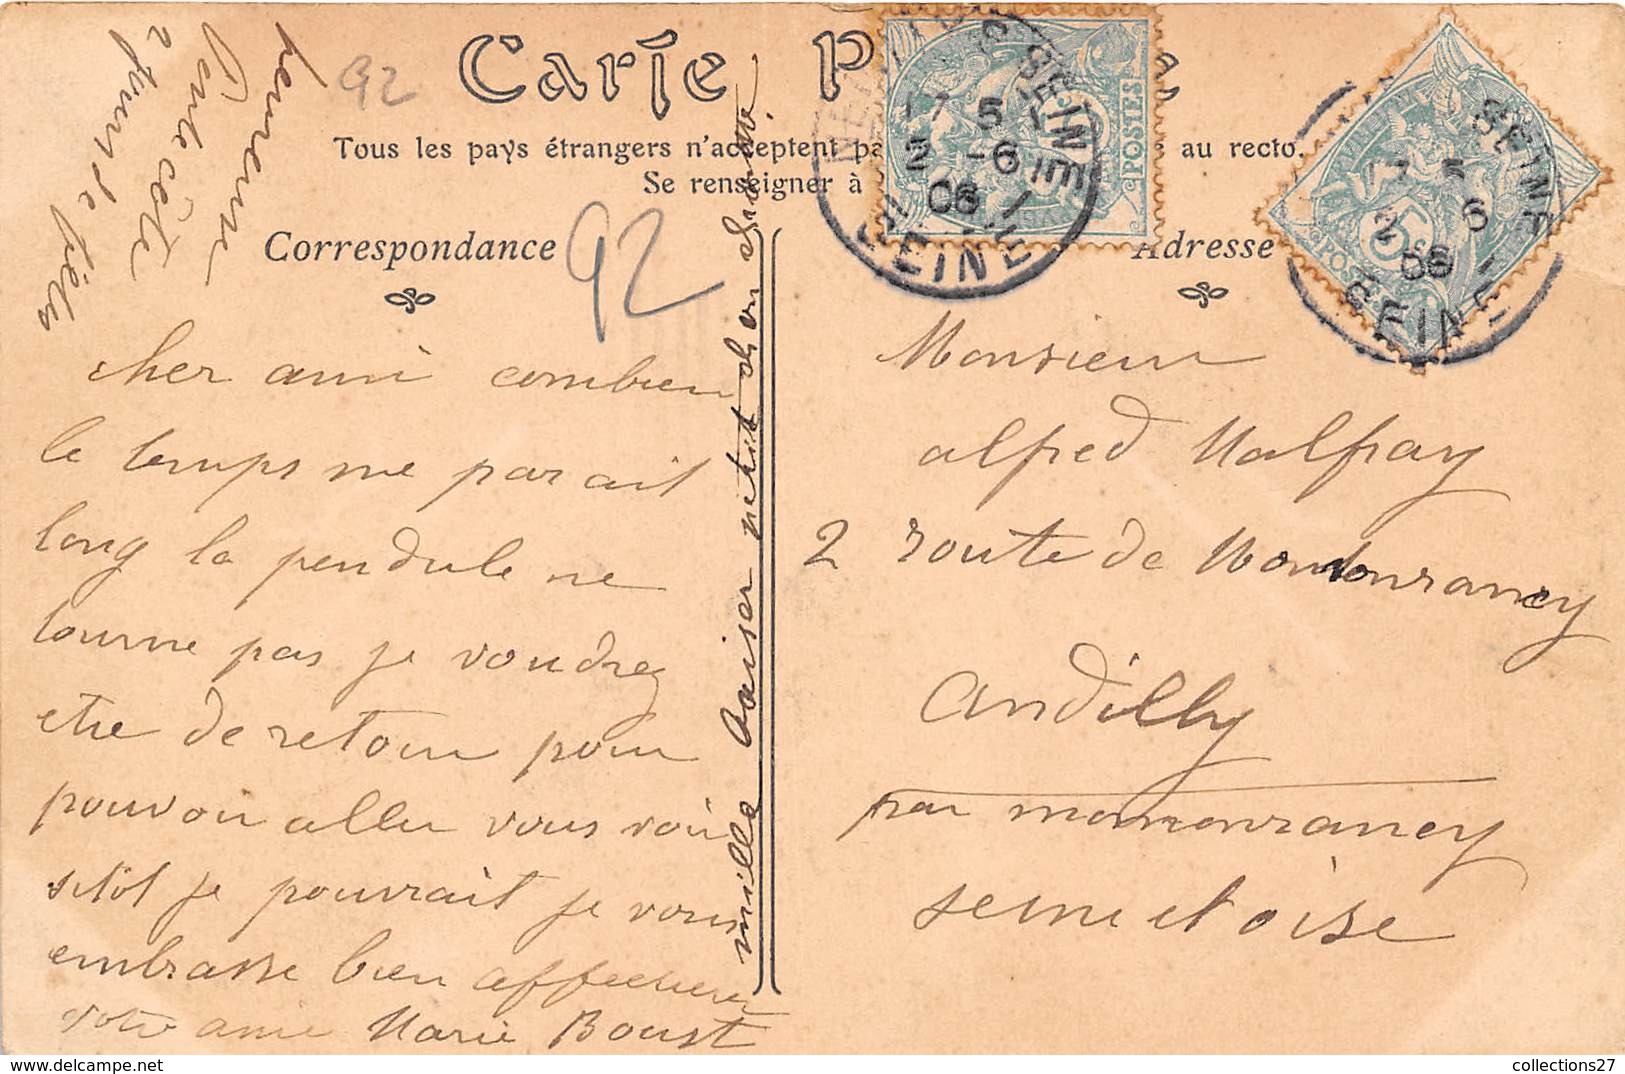 Carte P
Tous les pays étrangers n'acceptent pa au recto.
Se renseigner à
Correspondance
Adresse
92
92
cher ami combien
le temps me parait
long la pendule ne
tourne pas je voudrez
etre de retour pour
pouvoir aller vous voir
sitôt je pourrait je vous
embrasse bien affectueu
votre amie Marie Boust
mille baiser petit de on
2 jours de fêtes
Monsieur
alfred Malfray
2 route de Monmonrancy
andilly
par monmonrancy
seine et oise
17 5
2 -6
06
SEINE
POSTES
5
17 5
2 6
06
SEINE
POSTES
5
collections27